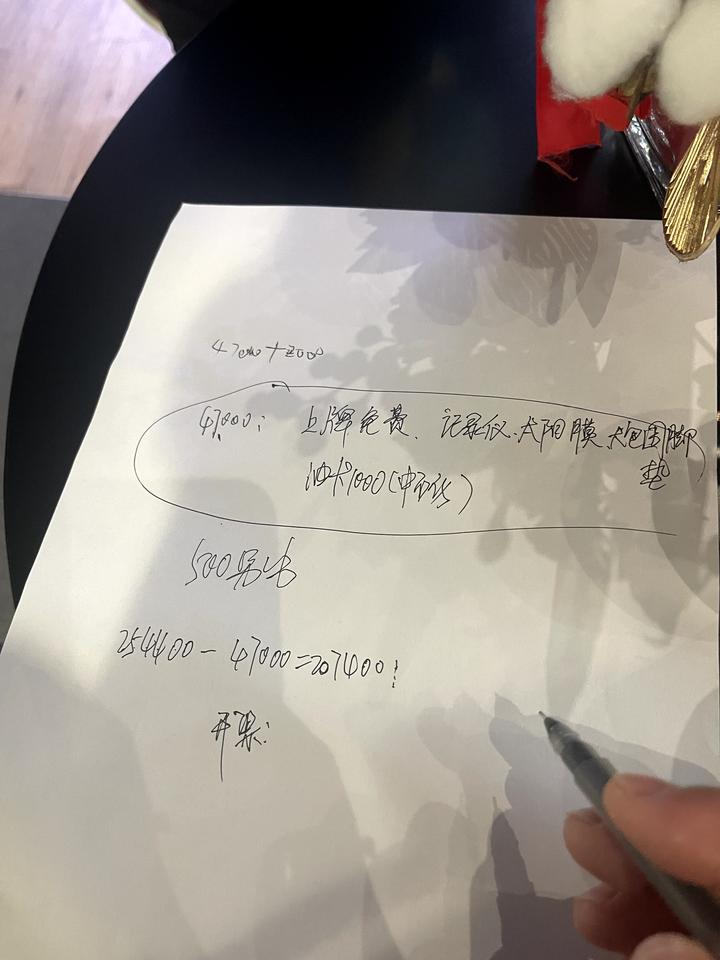 47000+2000
47000: 上牌免费、记录仪.太阳膜.大包围脚
垫
油卡1000(中石化)
500另出
254400-47000=207400:
开票: